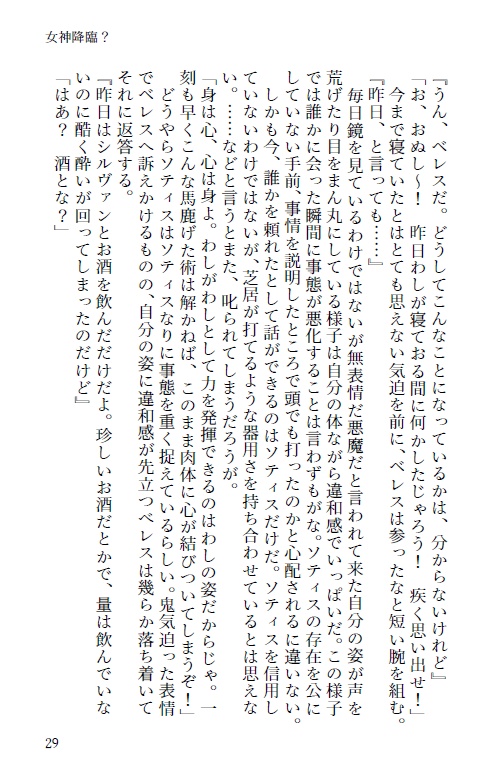 女神降臨？
『うん、ベレスだ。どうしてこんなことになっているかは、分からないけれど』
「お、おぬし～！　昨日わしが寝ておる間に何かしたじゃろう！　疾く思い出せ！」
　今まで寝ていたとはとても思えない気迫を前に、ベレスは参ったなと短い腕を組む。
『昨日、と言っても……』
　毎日鏡を見ているわけではないが無表情だ悪魔だと言われて来た自分の姿が声を
荒げたり目をまん丸にしている様子は自分の体ながら違和感でいっぱいだ。この様子
では誰かに会った瞬間に事態が悪化することは言わずもがな。ソティスの存在を公に
していない手前、事情を説明したところで頭でも打ったのかと心配されるに違いない。
　しかも今、誰かを頼れたとして話ができるのはソティスだけだ。ソティスを信用し
ていないわけではないが、芝居が打てるような器用さを持ち合わせているとは思えな
い。……などと言うとまた、叱られてしまうだろうが。
「身は心、心は身よ。わしがわしとして力を発揮できるのはわしの姿だからじゃ。一
刻も早くこんな馬鹿げた術は解かねば、このまま肉体に心が結びついてしまうぞ！」
　どうやらソティスはソティスなりに事態を重く捉えているらしい。鬼気迫った表情
でベレスへ訴えかけるものの、自分の姿に違和感が先立つベレスは幾らか落ち着いて
それに返答する。
『昨日はシルヴァンとお酒を飲んだだけだよ。珍しいお酒だとかで、量は飲んでいな
いのに酷く酔いが回ってしまったのだけど』
「はあ？　酒とな？」
29